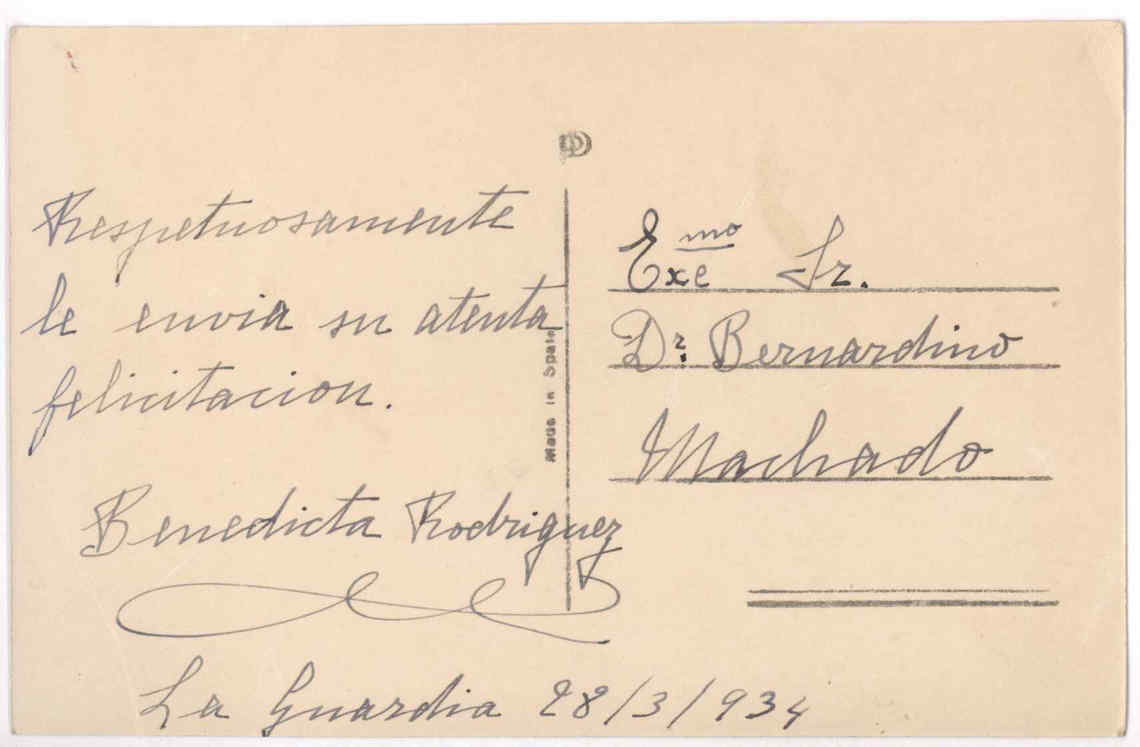 Respetuosamente
le envia su atenta
felicitacion.
Benedicta Rodriguez
La Guardia 28/3/934
Made in Spain
Exe mo Sr.
Dr. Bernardino
Machado